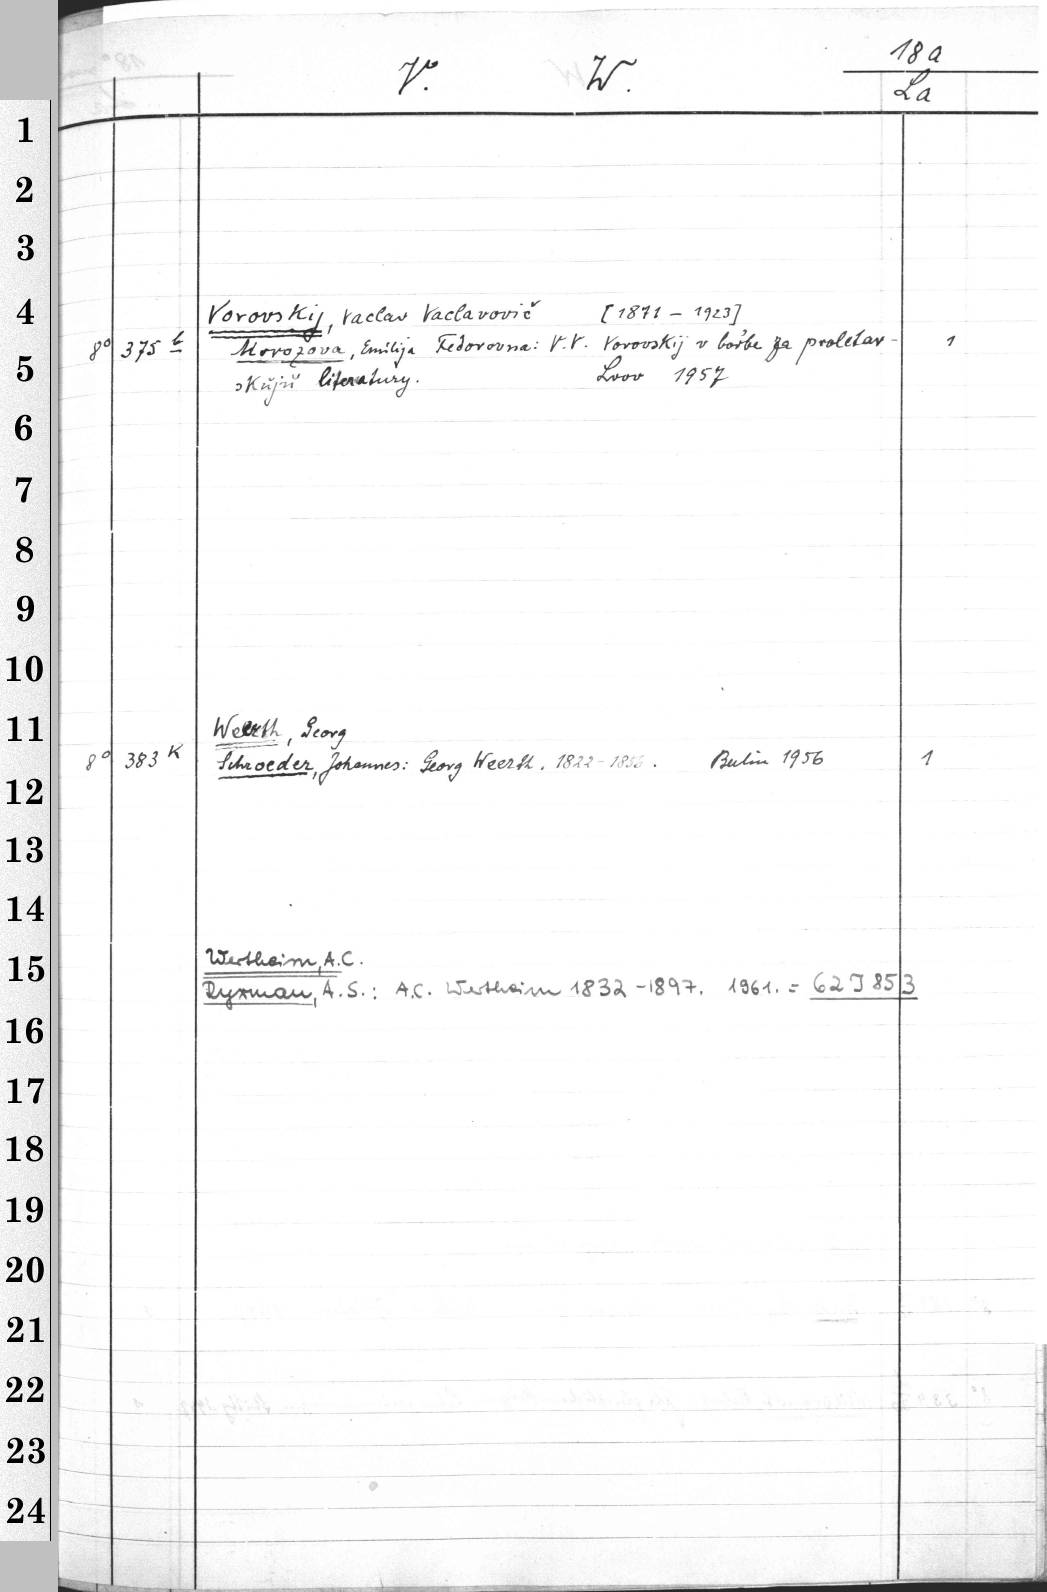 V. W. 18a
La
1
2
3
4 Vorovskij, Vaclav Vaclavovič [1871 – 1923]
8° 375 b Morozova, Emilija Fedorovna: V.V. Vorovskij v bor'be za proletar- 1
5 skuju literatury. Lvov 1957
6
7
8
9
10
11 Weerth, Georg
8° 383 K Schroeder, Johannes: Georg Weerth. 1822-1856. Berlin 1956 1
12
13
14
15 Wertheim, A.C.
Ryxman, A.S.: A.C. Wertheim 1832-1897. 1961. = 62 J 853
16
17
18
19
20
21
22
23
24